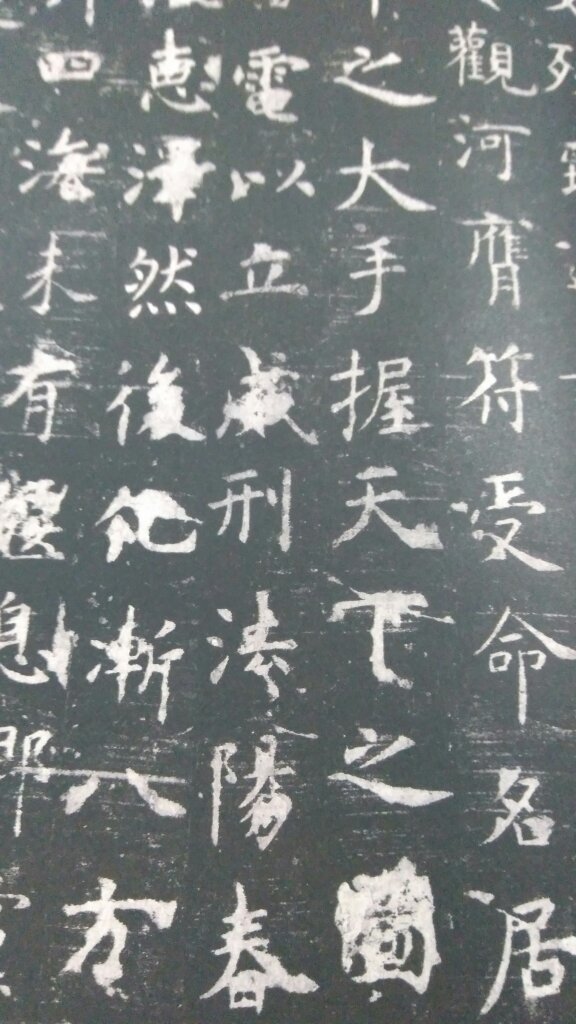 觀河膺符受命名居
之大手握天下之圖
電以立威刑法陽春
惠澤然後化漸八方
四海未有偃息